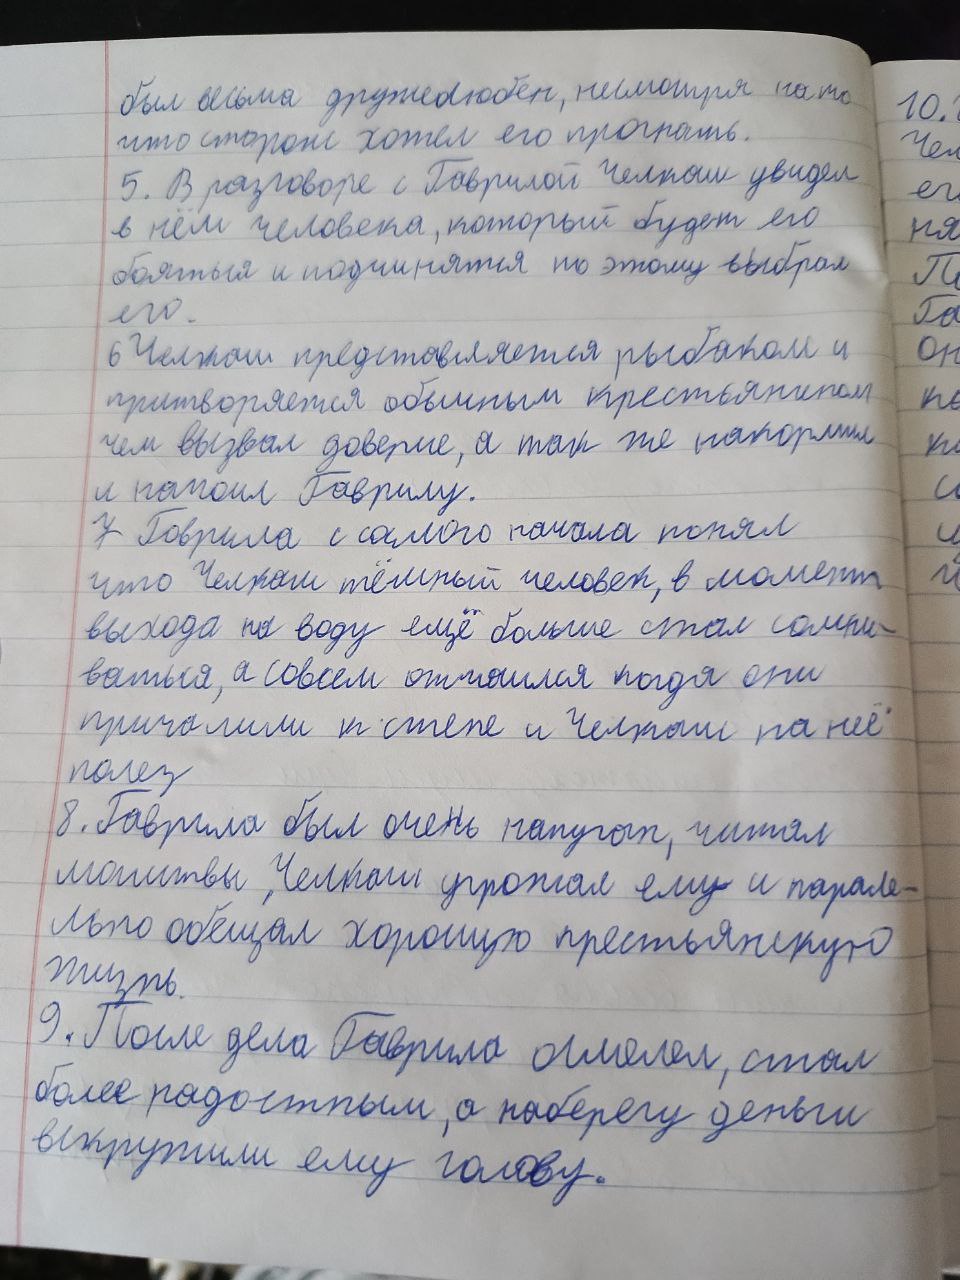 был весьма дружелюбен, несмотря на то
что сторож хотел его прогнать.
5. В разговоре с Гаврилой Челкаш увидел
в нём человека, который будет его
бояться и подчинятся по этому выбрал
его.
6 Челкаш представляется рыбаком и
притворяется обычным крестьянином
чем вызвал доверие, а так же накормил
и напоил Гаврилу.
7 Гаврила с самого начала понял
что Челкаш тёмный человек, в момент
выхода на воду ещё больше стал сомне-
ваться, а совсем отчаился когда они
причалили к стене и Челкаш на неё
полез
8. Гаврила был очень напуган, читал
молитвы, Челкаш угрожал ему и парале-
льно обещал хорошую крестьянскую
жизнь.
9. После дела Гаврила осмелел, стал
более радостным, а на берегу деньги
вскружили ему голову.
10.
Чел
его
ня
По
Га
он